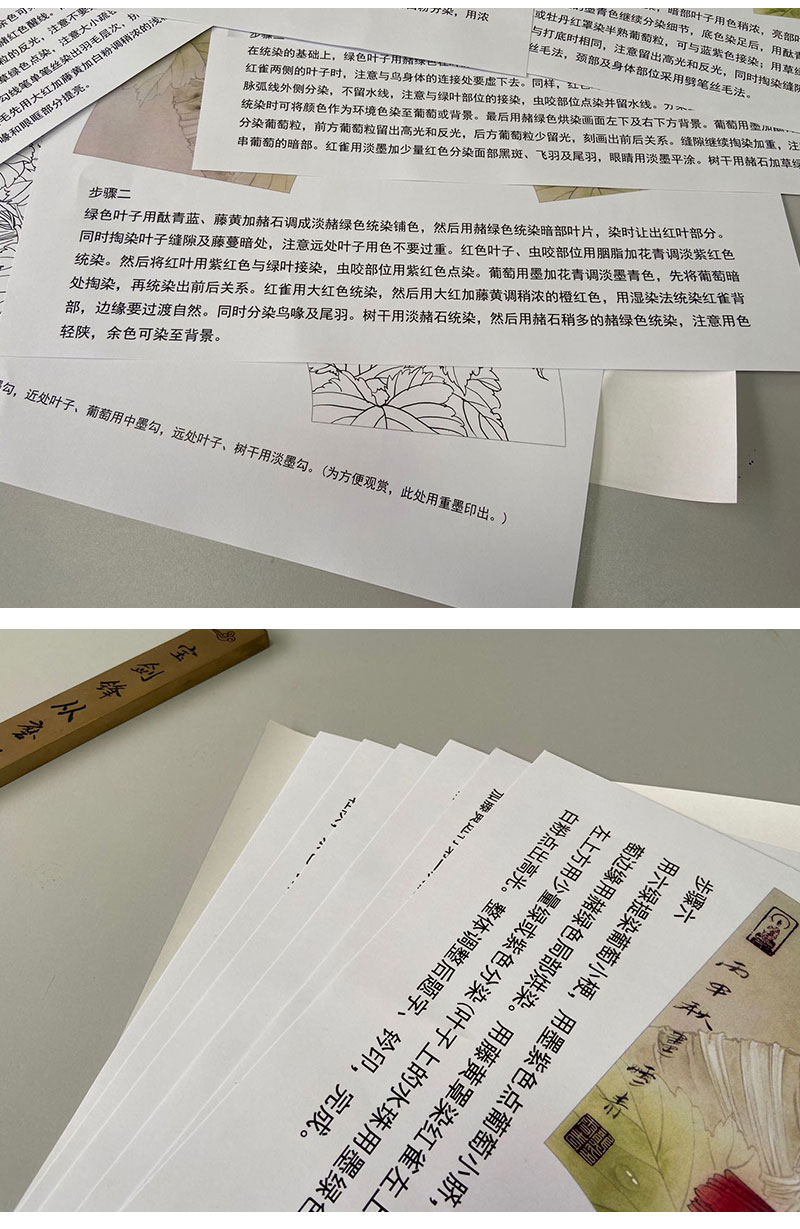 粉分染，用浓
的墨青色继续分染细节，底色染足后，用酞青
或牡丹红罩染半熟葡萄粒，可与蓝紫色接染；用草绿
与打底时相同，注意留出高光和反光，同时掏染缝隙
丝毛法，颈部及身体部位采用劈笔丝毛法。
，暗部叶子用色稍浓，亮部叶
绪红色醒线。
粒的反光，注意不要
草绿色点染，注意大小疏
勾线笔单笔丝染出羽毛层次，
毛先用大红加藤黄加白粉调稍浓的浅
缘和眼眶部分提亮。
在统染的基础上，绿色叶子用赭绿色
红雀两侧的叶子时，注意与鸟身体的连接处要虚下去。同样，红色
脉弧线外侧分染，不留水线，注意与绿叶部位的接染，虫咬部位点染并留水线。
统染时可将颜色作为环境色染至葡萄或背景。最后用赭绿色烘染画面左下及右下方背景。葡萄用墨加酞
分染葡萄粒，前方葡萄粒留出高光和反光，后方葡萄少留光，刻画出前后关系。缝隙继续掏染加重，注
串葡萄的暗部。红雀用淡墨加少量红色分染面部黑斑、飞羽及尾羽，眼睛用淡墨平涂。树干用赭石加草绿
步骤二
绿色叶子用酞青蓝、藤黄加赭石调成淡赭绿色统染铺色，然后用赭绿色统染暗部叶片，染时让出红叶部分。
同时掏染叶子缝隙及藤蔓暗处，注意远处叶子用色不要过重。红色叶子、虫咬部位用胭脂加花青调淡紫红色
统染。然后将红叶用紫红色与绿叶接染，虫咬部位用紫红色点染。葡萄用墨加花青调淡墨青色，先将葡萄暗
处掏染，再统染出前后关系。红雀用大红色统染，然后用大红加藤黄调稍浓的橙红色，用湿染法统染红雀背
部，边缘要过渡自然。同时分染鸟喙及尾羽。树干用淡赭石统染，然后用赭石稍多的赭绿色统染，注意用色
轻陕，余色可染至背景。
勾，近处叶子、葡萄用中墨勾，远处叶子、树干用淡墨勾。（为方便观赏，此处用重墨印出。）
宝剑锋从磨
步骤六
用六绿提染葡萄小梗，用墨紫色点葡萄小脐，
萄边缘用赭绿色局部烘染。用藤黄罩染红雀左上
左上方用少量绿或紫色分染（叶子上的水珠用墨绿色
白粉点出高光。整体调整后题字、钤印，完成。
丙申秋